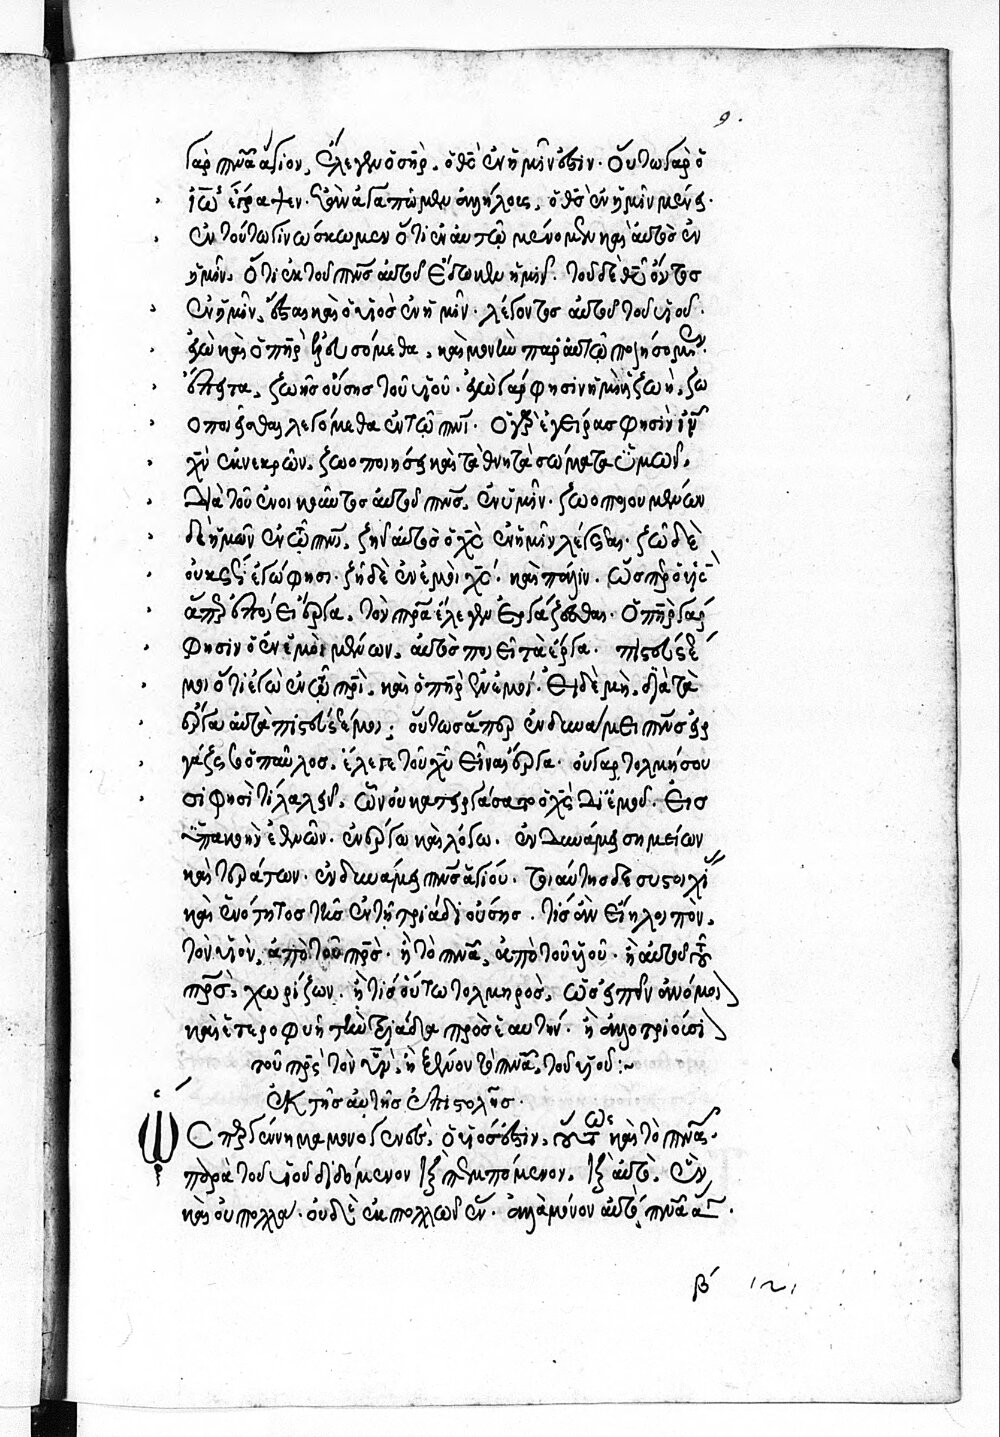 9.
γὰρ πνα ἅγιον, ἔλεγεν ὁ σηρ. ὁ θς ἐν ἡμῖν ἐστιν. Οὕτω γὰρ ὁ
ἰω ἔγραψεν. ἐὰν ἀγαπῶμεν ἀλλήλους, ὁ θς ἐν ἡμῖν μένει.
ἐν τούτω γινώσκωμεν ὅτι ἐν αὐτῶ μένομεν καὶ αὐτὸς ἐν
ἡμῖν. ὅτι ἐκ τοῦ πνς αὐτοῦ ἔδωκεν ἡμῖν. τοῦ δὲ θυ ὄντος
ἐν ἡμῖν, ἔσται καὶ ὁ υἱὸς ἐν ἡμῖν. λέγοντος αὐτοῦ τοῦ υἱοῦ.
ἐγὼ καὶ ὁ πηρ ἐλευσόμεθα, καὶ μονὴν παρ αὐτῶ ποιήσομεν.
ἔπειτα, ζωῆς οὔσης τοῦ υἱοῦ. ἐγὼ γάρ φησιν εἰμι ἡ ζωὴ, ζω
οποιεῖσθαι λεγόμεθα ἐν τῶ πνι. Ὁ γὰρ ἐγείρας φησὶν ιν
χν ἐκ νεκρῶν, ζωοποιήσει καὶ τὰ θνητὰ σώματα ὑμῶν,
Διὰ τοῦ ἐνοικοῦντος αὐτοῦ πνς. ἐν ὑμῖν. ζωοποιουμένων
δὲ ἡμῶν ἐν τῶ πνι. ζῆν αὐτὸς ὁ χς ἐν ἡμῖν λέγεται. ζῶ δὲ
οὐκ ἔτι ἐγώ φησι. ζῆ δὲ ἐν ἐμοὶ χς. καὶ πάλιν. ὥσπερ ὁ υἱὸς
ἅπερ ἐποίει ἔργα, τὸν πρα ἔλεγεν ἐργάζεσθαι. Ὁ πηρ γάρ
φησιν ὁ ἐν ἐμοὶ μένων, αὐτὸς ποιεῖ τὰ ἔργα. πιστεύετέ
μοι ὅτι ἐγὼ ἐν τῶ πρι, καὶ ὁ πηρ ἐν ἐμοί. Εἰ δὲ μὴ, διὰ τὰ
ἔργα αὐτὰ πιστεύετέ μοι· οὕτως ἅπερ ἐν δυνάμει πνς εἰρ
γάζετο ὁ παῦλος, ἔλεγε τοῦ χυ εἶναι ἔργα. οὐ γὰρ τολμήσω
φησὶ τὶ λαλεῖν, ὧν οὐ κατειργάσατο ὁ χς Δι ἐμοῦ. Εἰς
ὑπακοὴν ἐθνῶν. ἐν ἔργω καὶ λόγω. ἐν Δυνάμει σημείων
καὶ τεράτων. ἐν δυνάμει πνς ἁγίου. τοιαύτης δὲ συστοιχί
καὶ ἑνότητος τῆς ἐν τῆ τριάδι οὔσης. τίς ἂν εἴη λοιπὸν,
τὸν υἱὸν, ἀπὸ τοῦ πρς. ἢ τὸ πνα, ἀπὸ τοῦ υἱοῦ. ἢ αὐτοῦ τοῦ
πρς, χωρίζων. ἢ τίς οὕτω τολμηρὸς, ὡς εἰπεῖν ἀνόμοι
καὶ ἑτεροφυῆ τὴν τριάδα πρὸς ἑαυτήν. ἢ ἀλλοτριοούσι
τοῦ πρς τὸν υν, ἢ ξένον τὸ πνα, τοῦ υἱοῦ :~
ἐκ τῆς αὐτῆς ἐπιστολῆς.
Ὥσπερ γέννημα μονογενὲς, ὁ υἱός ἐστιν, οὕτως καὶ τὸ πνα.
παρὰ τοῦ υἱοῦ διδόμενον καὶ πεμπόμενον, καὶ αὐτὸ, ἕν
καὶ οὐ πολλά. οὐδὲ ἐκ πολλῶν ἕν. ἀλλὰ μόνον αὐτὸ πνα ἅγ.
β